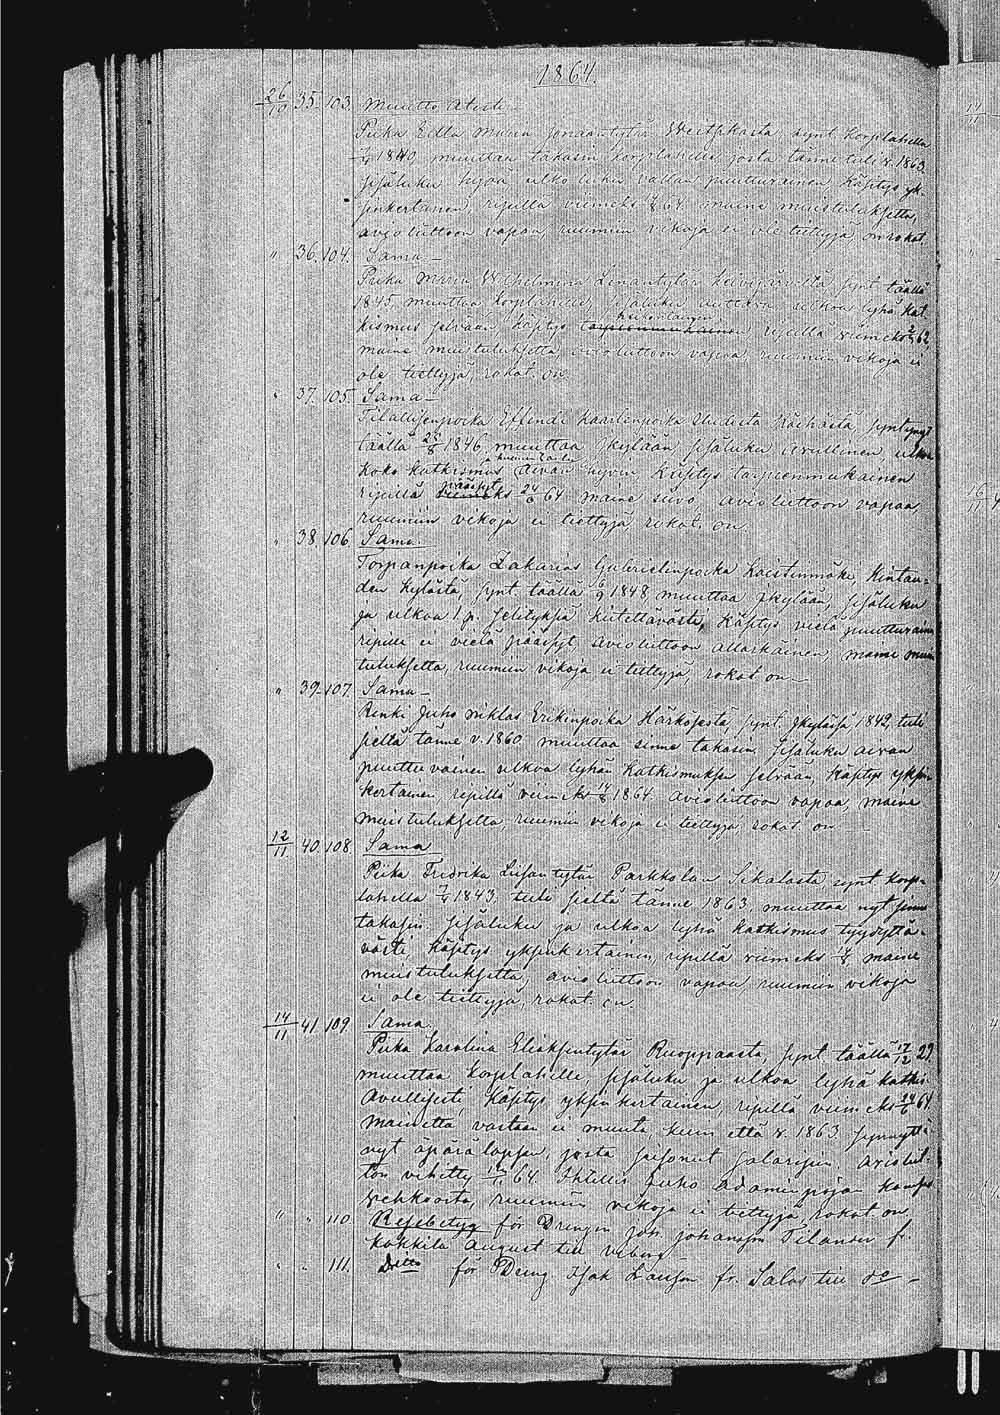 1864.
26/10 35. 103. Muutto Atesti
Piika Eella Maria Jonaantytär Weitsikasta synt. Korpilahella
1840, muuttaa takasin Korpilahelle josta tänne tuli v. 1863.
sisäluku hyvä ulko luku vallan puuttuvainen Käsitys yk-
sinkertainen, ripillä viimeks 64 maine muistutuksetta,
avio liittoon vapaa, ruumiin vikoja ei ole tiettyjä on rokot.
" 36. 104. Sama –
Piika Maria Wilhelmina Linantytär synt. täällä
1845 muuttaa Korpilahelle, sisäluku auttava, ulkoa lyhä kat.
kismus selvään, Käsitys heikonlainen ripillä viimeks 62,
maine muistutuksetta, avioliittoon vapaa, ruumiin vikoja ei
ole tiettyjä, rokot. on.
" 37. 105. Sama –
Tilallisenpoika Effendi Kaarlenpoika synt
täällä 25/8 1846 muuttaa Jkylään sisäluku avullinen, ulkoa
koko katkismus aivan hyvin, Käsitys tarpeenmukainen
ripillä päässyt 24/6 64 maine siivo avioliittoon vapaa,
ruumiin vikoja ei tiettyjä rokot. on.
" 38. 106. Sama.
Torpanpoika Zakarias Gabrielinpoika Kaistinmäki, Kintau-
den kylästä, synt. täällä 6/9 1848 muuttaa Jkylään, sisäluku
ja ulkoa 1 p. selityksiä kiitettävästi, Käsitys vielä puuttuvain
ripille ei vielä päässyt, avioliittoon allaikäinen, maine muis
tutuksetta, ruumiin vikoja ei tiettyjä, rokot on –
" 39. 107. Sama –
Renki Juho Niklas Erikinpoika Härköstä, synt. Jkylässä 1842, tuli
sieltä tänne v. 1860 muuttaa sinne takasin, sisäluku aivan
puuttuvainen ulkoa lyhän Katkismuksen selvään, Käsitys yksin
kertainen, ripillä viimeks 1864. Avioliittoon vapaa, maine
muistutuksetta, ruumiin vikoja ei tiettyjä, rokot. on –
12/11 40. 108. Sama
Piika Fredrika Liisantytär Parkkolan Sikalasta synt Korpi-
lahella 1843. tuli sieltä tänne 1863, muuttaa nyt sinne
takasin sisäluku ja ulkoa lyhä katkismus tyydyttä-
västi, Käsitys yksinkertainen, ripillä viimeks maine
muistutuksetta, avio liittoon vapaa ruumiin vikoja
ei ole tiettyjä, rokot. on.
14/11 41. 109. Sama.
Piika Karolina Eliaksentytär Ruoppaasta, synt täällä 17/12 29.
muuttaa Korpilahelle, sisäluku ja ulkoa lyhä katki.
avullisesti, Käsitys yksinkertainen, ripillä viimeks 24/6 64.
mainetta vastaan ei muuta, kuin että v. 1863. synnyttä-
nyt äpärä lapsen, josta sovitus avioliit-
ton vihitty 64. Juho Adaminpojan
ruumiin vikoja ei tiettyjä, rokot. on
" " 110. Resebetyg för Drengen Joh. Johansson Tilander fr.
Kokkila August till Wiborg
" " 111. Ditto för Dreng Isak fr. Salos till do –